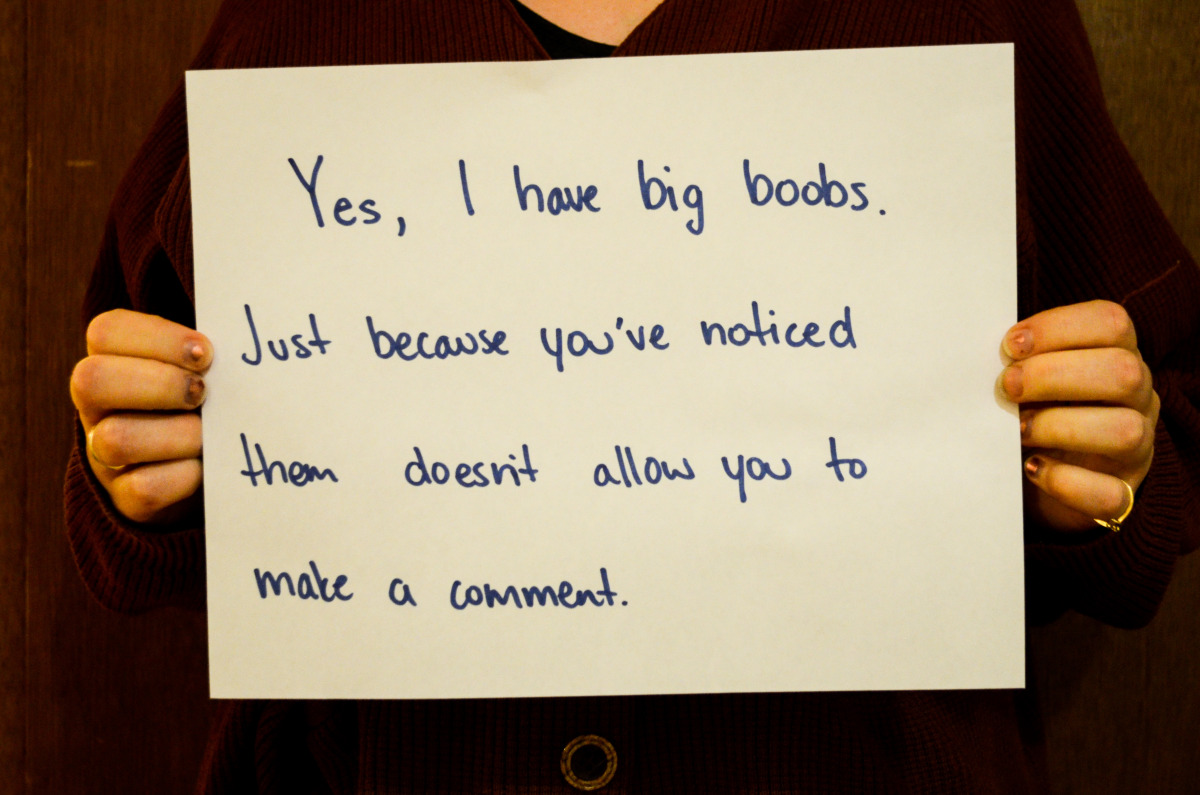 Yes, I have big boobs.
Just because you've noticed
them doesn't allow you to
make a comment.